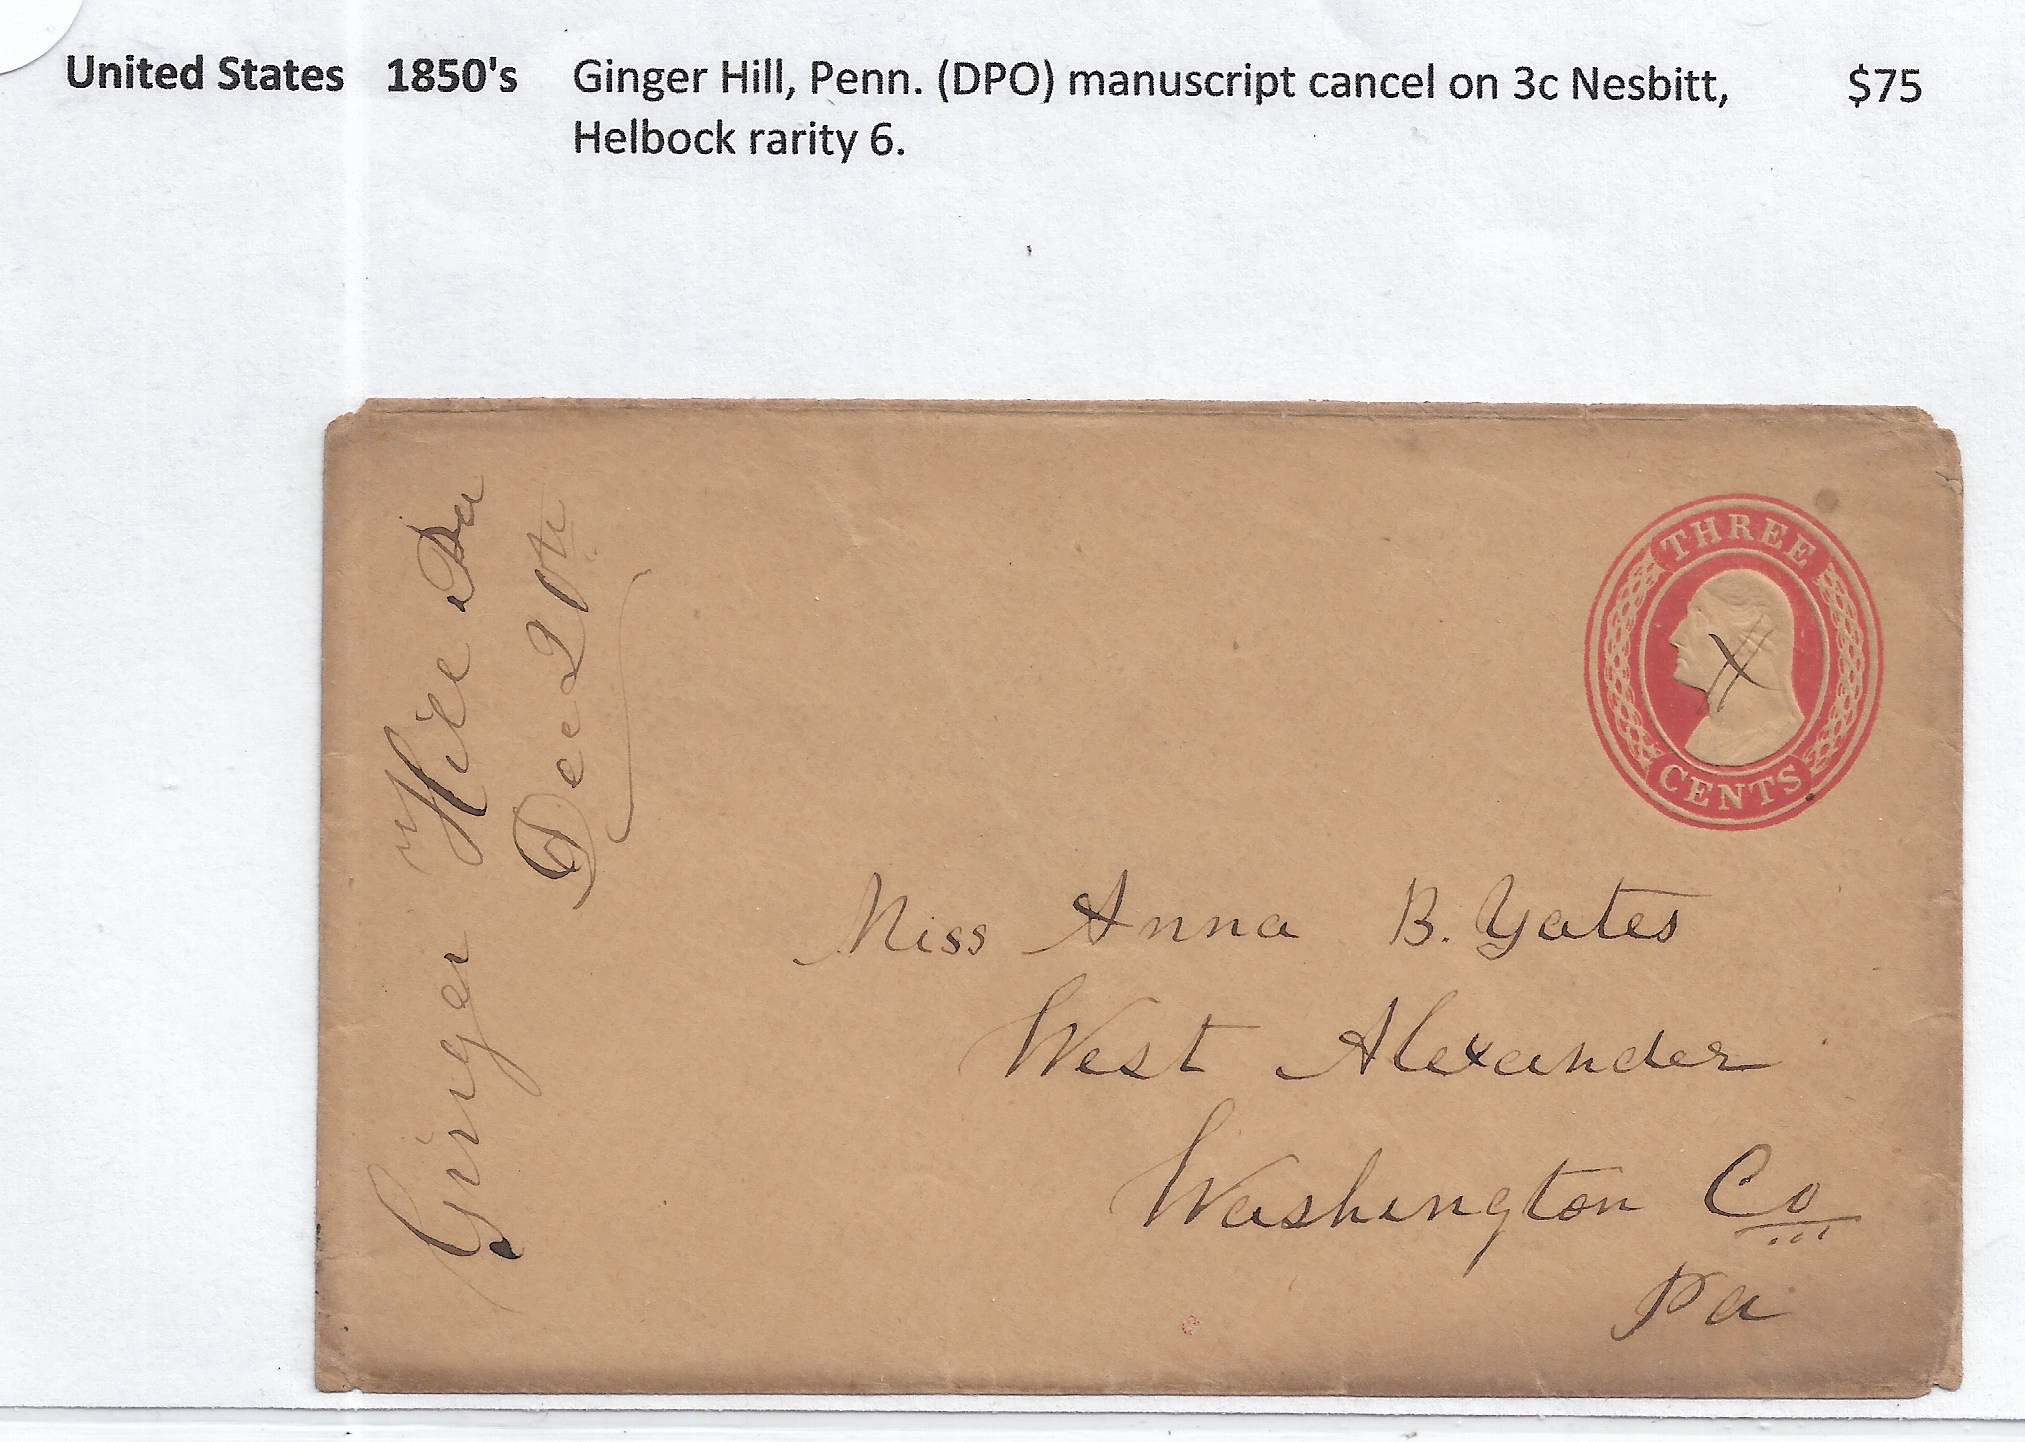 United States 1850's Ginger Hill, Penn. (DPO) manuscript cancel on 3c Nesbitt, $75
Helbock rarity 6.
Ginger Hill Pa
Dec 20th
THREE
CENTS
X
Miss Anna B. Yates
West Alexander
Washington Co
Pa